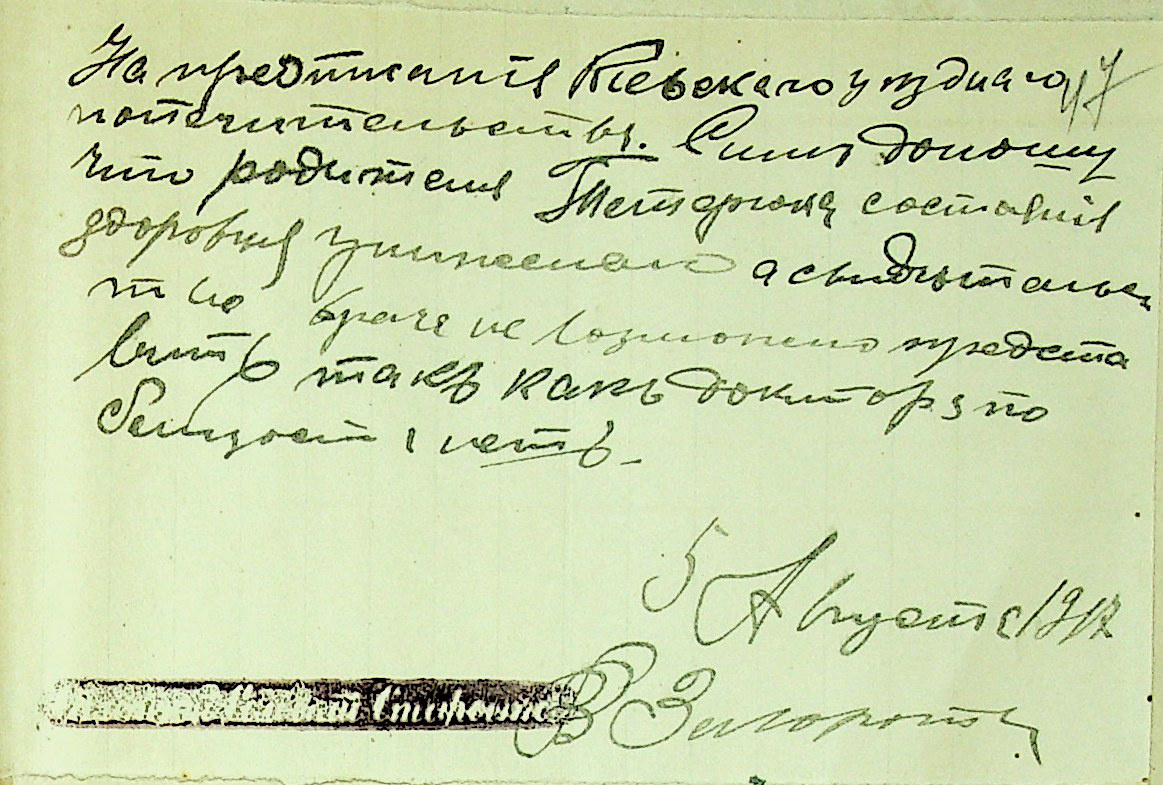 На предписанія Кіевскаго уезднаго 47
попечительства. Симъ доношу
что родителя Тетерюка состоянія
здоровья униженаго а свидѣтельс
тво врача не возможно предста
вить такъ какъ доктора по
близости нетъ.
5 Августа 1917
Староста